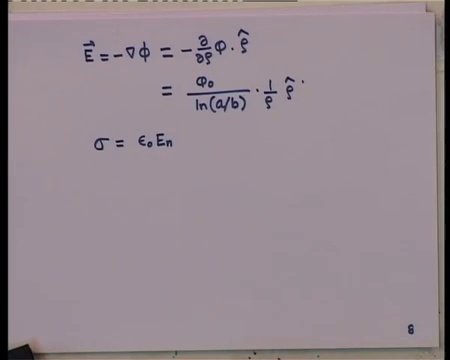 E⃗ = -∇ϕ = -∂/∂ρ ϕ . ρ̂
= Φ₀/ln(a/b) · 1/ρ ρ̂ .
σ = ε₀En
8